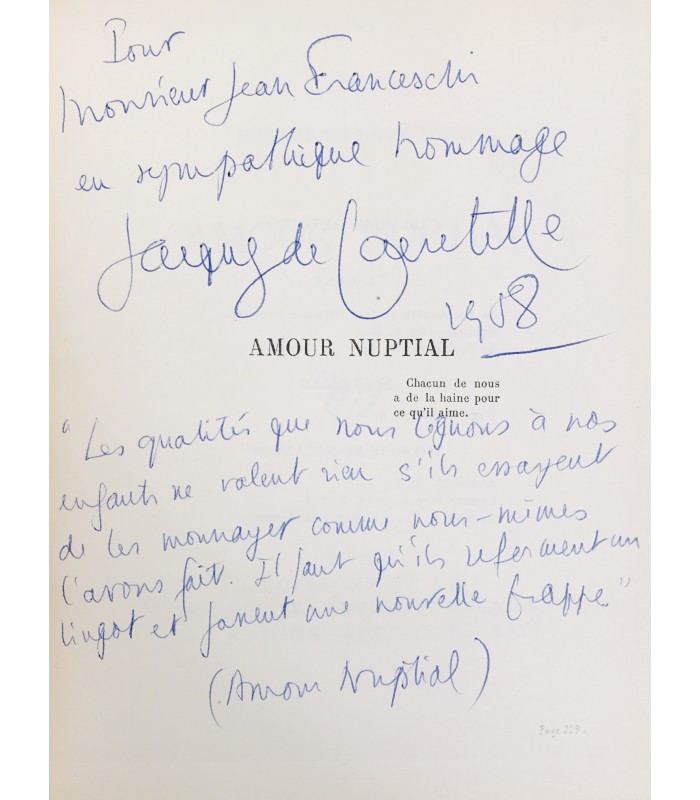 Pour
Monsieur Jean Franceschi
en sympathique hommage
Jacques de Lacretelle
1958
AMOUR NUPTIAL
Chacun de nous
a de la haine pour
ce qu'il aime.
"Les qualités que nous léguons à nos
enfants ne valent rien s'ils essayent
de les monnayer comme nous-mêmes
l'avons fait. Il faut qu'ils reforment un
lingot et fassent une nouvelle frappe"
(Amour Nuptial)
Page 229.